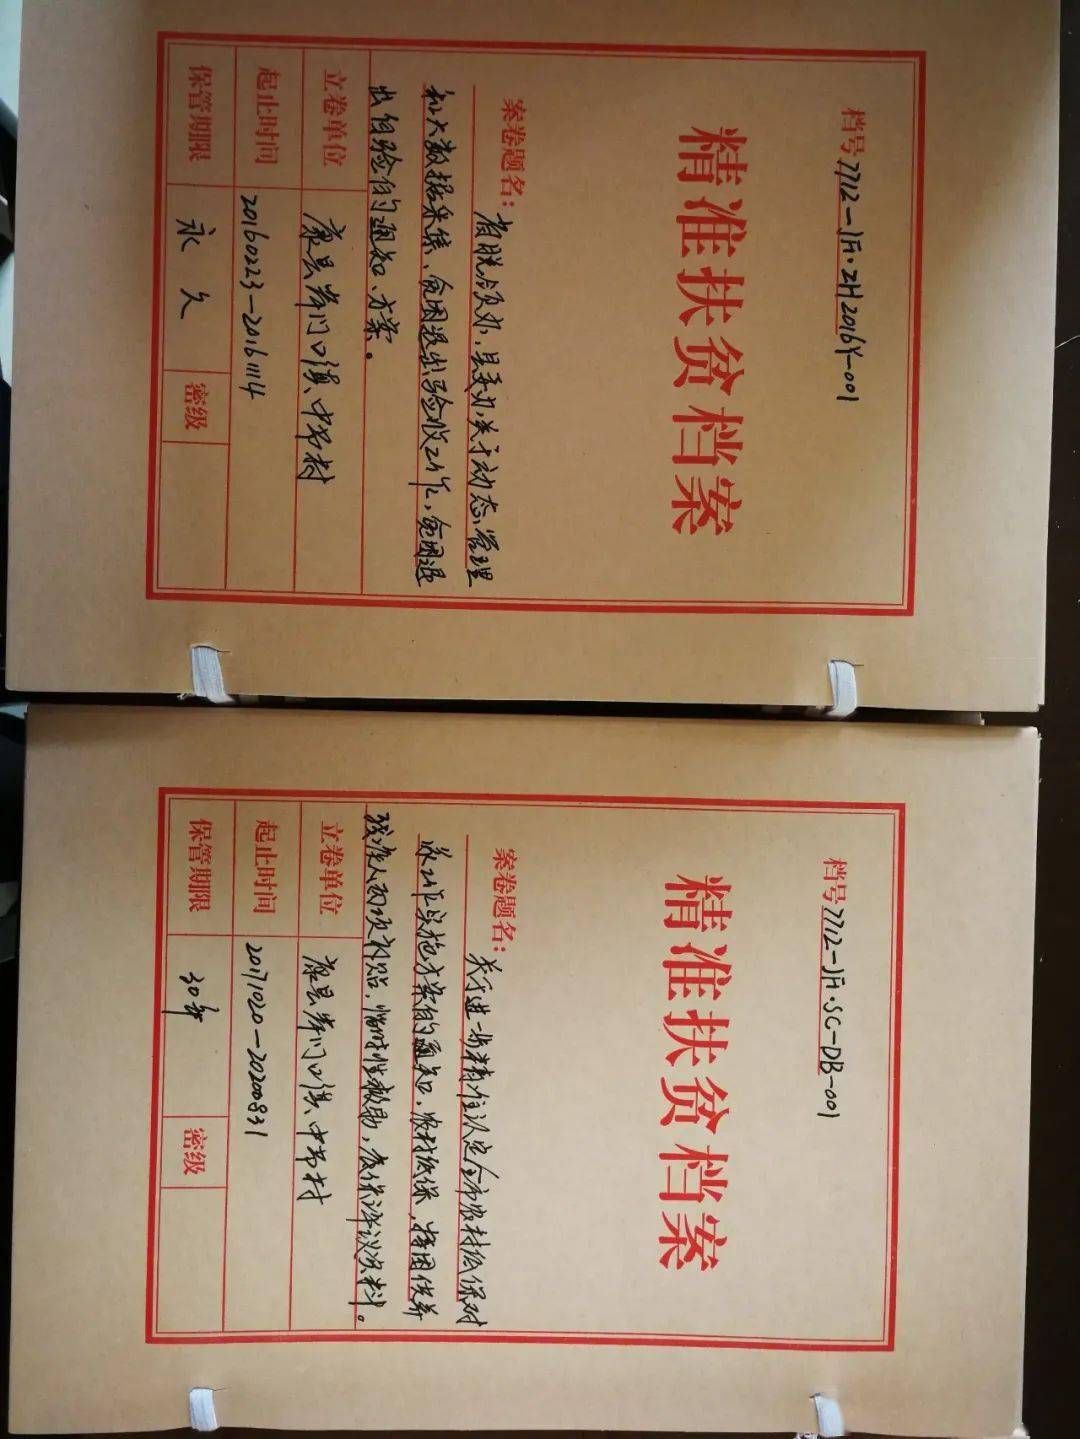 档号7712-JF·ZH2016Y-001
精准扶贫档案
案卷题名：省脱领办、县委办关于动态管理
和大数据采集、贫困退出验收工作，贫困退
出经验的通知、方案。
立卷单位 康县岸门口镇中节村
起止时间 20160223-20161114
保管期限 永久 密级
档号7712-JF·SC-DB-001
精准扶贫档案
案卷题名：关于进一步精准认定全市农村低保对
象工作实施方案的通知，农村低保，特困供养
残疾人两项补贴，临时性救助，低保评议资料。
立卷单位 康县岸门口镇中节村
起止时间 20171020-20200831
保管期限 30年 密级